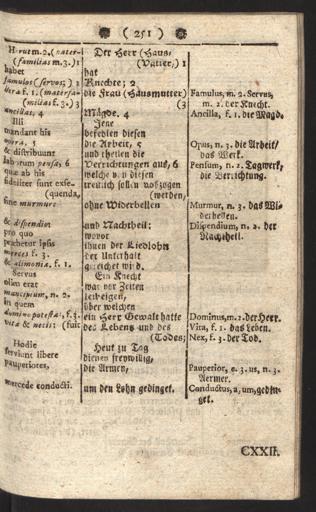 ( 251 )
Herus m. 2. (pater-
(familias m. 3.) 1
habet
famulos (servos;) 2
Hera f. 1. (materfa-
(milias f. 3.) 3
ancillas, 4
Illi
mandant his
opera, 5
& distribuunt
laborum pensa; 6
quæ ab his
fideliter sunt exse-
(quenda,
sine murmure
& dispendio:
pro quo
præbetur ipsis
merces f. 3.
& alimonia, f. 1.
Servus
olim erat
mancipium, n. 2.
in quem
domino potestas, f. 3.
vitæ & necis: (fuit
Hodie
serviunt libere
pauperiores,
mercede conducti.
Der Herr (Haus-
(Vatter,) 1
hat
Knechte; 2
die Frau (Hausmutter)
(3
Mägde. 4
Jene
befehlen diesen
die Arbeit, 5
und theilen die
Verrichtungen aus, 6
welche von diesen
treulich sollen vollzogen
(werden,
ohne Widerbellen
und Nachtheil:
wovor
ihnen der Liedlohn
der Unterhalt
gereichet wird.
Ein Knecht
war vor Zeiten
leibeigen,
über welchen
ein Herr Gewalt hatte
des Lebens und des
(Todes;
Heut zu Tag
dienen freywillig,
die Armen,
um den Lohn gedinget.
Famulus, m. 2. Servus,
m. 2. der Knecht.
Ancilla, f. 1. die Magd.
Opus, n. 3. die Arbeit/
das Werk.
Pensum, n. 2. Tagwerk,
die Verrichtung.
Murmur, n. 3. das Wi-
derbellen.
Dispendium, n. 2. der
Nachtheil.
Dominus, m. 2. der Herr.
Vita, f. 1. das Leben.
Nex, f. 3. der Tod.
Pauperior, c. 3. us, n. 3.
Aermer.
Conductus, a, um, gedin-
get.
CXXII.